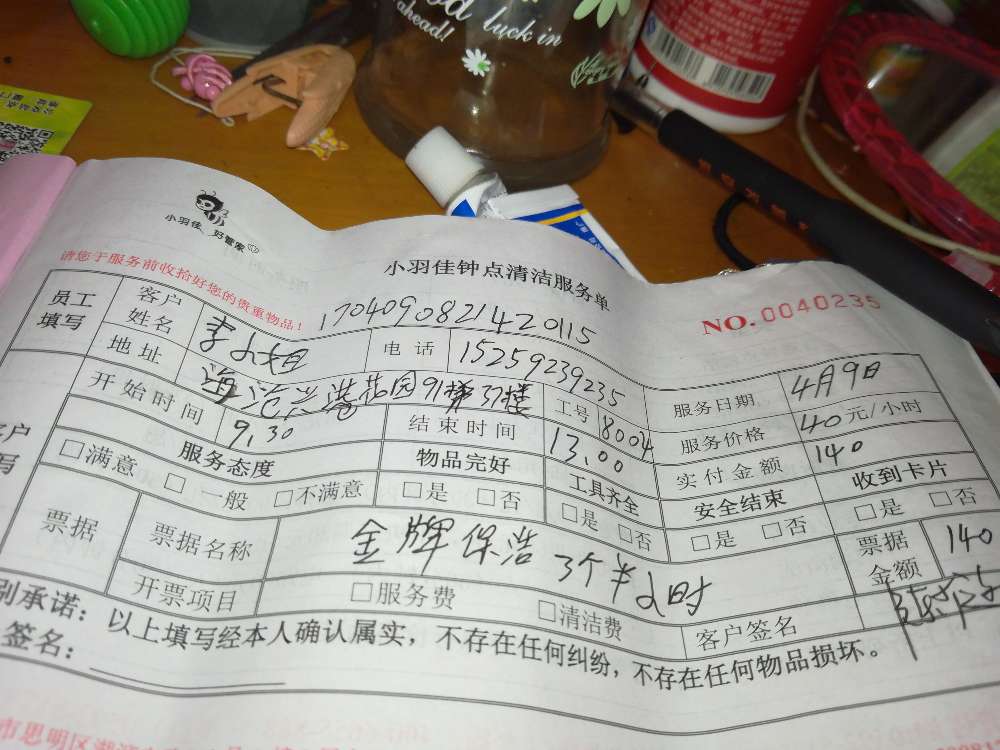 luck in
ahead!
小羽佳 好管家
小羽佳钟点清洁服务单
请您于服务前收拾好您的贵重物品!
1704090821420115
NO.0040235
员工填写 客户姓名 李小姐 电话 15259239235 服务日期 4月9日
地址 海沧兴港花园91梯37楼 工号 8004 服务价格 40元/小时
开始时间 9.30 结束时间 13.00 实付金额 140
服务态度 物品完好 工具齐全 安全结束 收到卡片
□满意 □一般 □不满意 □是 □否 □是 □否 □是 □否 □是 □否
票据 票据名称 金牌保洁 3个半小时 票据金额 140
开票项目 □服务费 □清洁费 客户签名
别承诺:以上填写经本人确认属实,不存在任何纠纷,不存在任何物品损坏。
签名:
市思明区湖